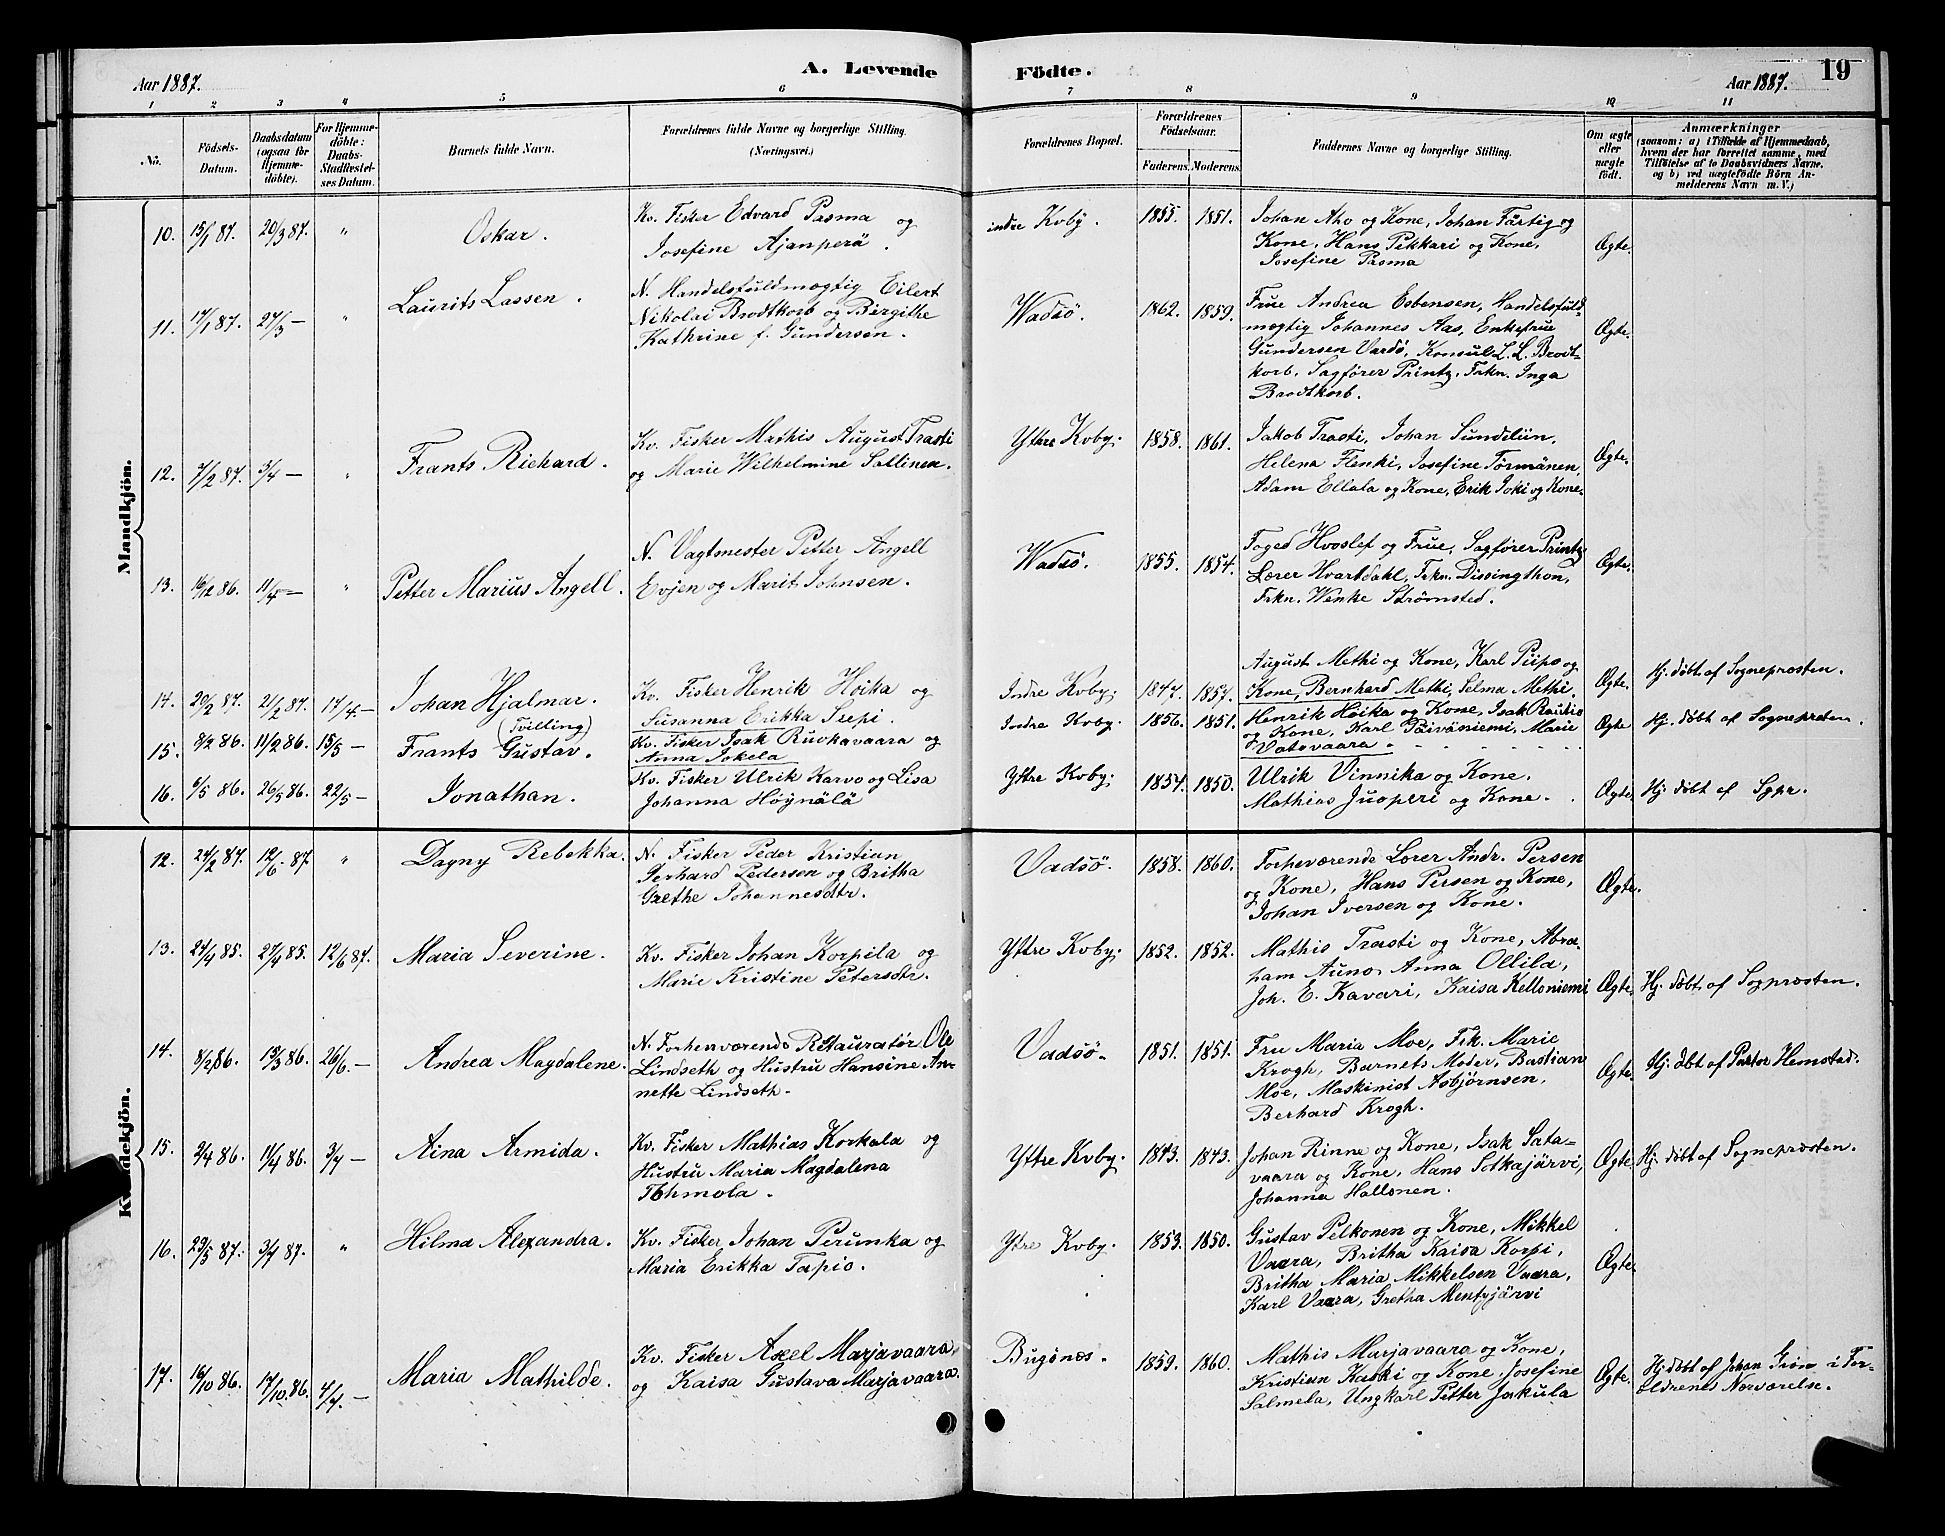 Aar 1887.
A. Levende Födte.
Aar 1887.
19
1 2 3 4 5 6 7 8 9 10 11
No.
Födsels-Datum.
Daabsdatum (ogsaa for Hjemme-döbte).
For Hjemme-döbte: Daabs-Stadfæstel-ses Datum.
Barnets fulde Navn.
Forældrenes fulde Navne og borgerlige Stilling. (Næringsvei.)
Forældrenes Bopæl.
Forældrenes Födselsaar.
Faderens. Moderens.
Faddernes Navne og borgerlige Stilling.
Om ægte eller uægte födt.
Anmærkninger
(saasom: a) i Tilfælde af Hjemmedaab,
hvem der har forrettet samme, med
Tilföielse af to Daabsvidners Navne,
og b) ved uægtefödte Börn An-
melderens Navn m. V.)
Mandkjön.
10. 15/1 87. 20/3 87. " Oskar.
Kv. Fisker Edvard Pasma og
Josefine Ajanperä.
indre Kvby. 1855. 1851.
Johan Aho og Kone, Johan Färtig og
Kone, Hans Pekkari og Kone,
Josefine Pasma
Ægte.
11. 17/1 87. 27/3 — " Laurits Lassen.
N. Handelsfuldmægtig Eilert
Nikolai Brodtkorb og Birgithe
Kathrine f. Gundersen.
Wadsö. 1862. 1859.
Frue Andrea Esbensen, Handelsfuld-
mægtig Johannes Aas, Enkefrue
Gundersen Vardö, Konsul L. L. Brodt-
korb. Sagfører Printz, Frkn. Inga
Brodtkorb.
Ægte.
12. 7/2 87. 3/4 — " Frants Richard.
Kv. Fisker Mathis August Trasti
og Marie Wilhelmine Sallinen.
Ythre Kvby. 1858. 1861.
Jakob Trasti, Johan Sundelin,
Helena Flenki, Josefine Törmänen,
Adam Ellala og Kone, Erik Joki og Kone.
Ægte.
13. 16/12 86. 11/4 — " Petter Marius Angell.
N. Vagtmester Petter Angell
Evjen og Marit Johnsen.
Wadsö. 1855. 1854.
Foged Hvoslef og Frue, Sagfører Printz
Lærer Hvartdahl, Frkn. Dissingthon,
Frkn. Wenke Strømsted.
Ægte.
14. 20/2 87. 21/2 87. 17/4 — Johan Hjalmar.
Kv. Fisker Henrik Hoika og
Susanna Erikka Sepi.
Indre Kvby. 1847. 1857.
August Methi og Kone, Karl Piipo og
Kone, Bernhard Methi, Selma Methi.
Ægte. Hj. döbt af Sognepræsten.
15. 8/2 86. 11/2 86. 15/5 — (Tvilling) Frants Gustav.
Kv. Fisker Isak Ruokavaara og
Anna Jokela
Indre Kvby. 1856. 1851.
Henrik Hoika og Kone, Isak Rautio
og Kone, Karl Päiväniemi, Marie
Vatovaara
Ægte Hj. döbt af Sognepreten.
16. 6/5 86. 26/5 86. 22/5 — Jonathan.
Kv. Fisker Ulrik Karvo og Lisa
Johanna Höynälä
Ytre Kvby. 1854. 1850.
Ulrik Vinnika og Kone.
Mathias Juoperi og Kone.
Ægte. Hj. döbt af Sgpr.
Kvindekjön.
12. 24/2 87. 12/6 87. " Dagny Rebekka.
N. Fisker Peder Kristian
Gerhard Pedersen og Britha
Grethe Johannesdtr.
Vadsö. 1858. 1860.
Forheværende Lærer Andr. Persen
og Kone, Hans Persen og Kone,
Johan Iversen og Kone.
Ægte.
13. 24/4 85. 27/4 85. 12/6 87. Maria Severine.
Kv. Fisker Johan Korpila og
Marie Kristine Petersdtr.
Ytre Kvby. 1852. 1852.
Mathis Trasti og Kone, Abra-
ham Auno, Anna Ollila,
Joh. E. Kavari, Kaisa Kelloniemi
Ægte. Hj. döbt af Sogpræsten.
14. 8/2 86. 19/3 86. 26/6 — Andrea Magdalene.
N. Forhenværende Restauratør Ole
Lindseth og Hustru Hansine An-
nette Lindseth.
Vadsö. 1851. 1851.
Fru Maria Moe, Frk. Marie
Krogh, Barnets Moder, Bastian
Moe, Maskinist Asbjörnsen,
Berhard Krogh.
Ægte. Hj. döbt af Pastor Hemstad.
15. 2/4 86. 11/4 86. 3/7 — Aina Armida.
Kv. Fisker Mathias Korkala og
Hustru Maria Magdalena
Tohmola.
Ytre Kvby. 1843. 1843.
Johan Rinne og Kone, Isak Sata-
vaara og Kone, Hans Sotkajärvi,
Johanna Hallonen.
Ægte. Hj. döbt af Sognepræsten.
16. 29/5 87. 3/7 87. " Hilma Alexandra.
Kv. Fisker Johan Perunka og
Maria Erikka Tapio.
Ytre Kvby. 1853. 1850.
Gustav Pelkonen og Kone, Mikkel
Vaara, Britha Kaisa Korpi,
Britha Maria Mikkelsen Vaara,
Karl Vaara, Gretha Mentyjärvi
Ægte.
17. 16/10 86. 17/10 86. 4/7 — Maria Mathilde.
Kv. Fisker Axel Marjavaara,
og Kaisa Gustava Marjavaara.
Bugönæs. 1859. 1860.
Mathis Marjavaara og Kone,
Kristian Kakki og Kone, Josefine
Salmela, Ungkarl Petter Jakula
Ægte. Hj. döbt af Johan Grön i For-
ældrenes Nærværelse.